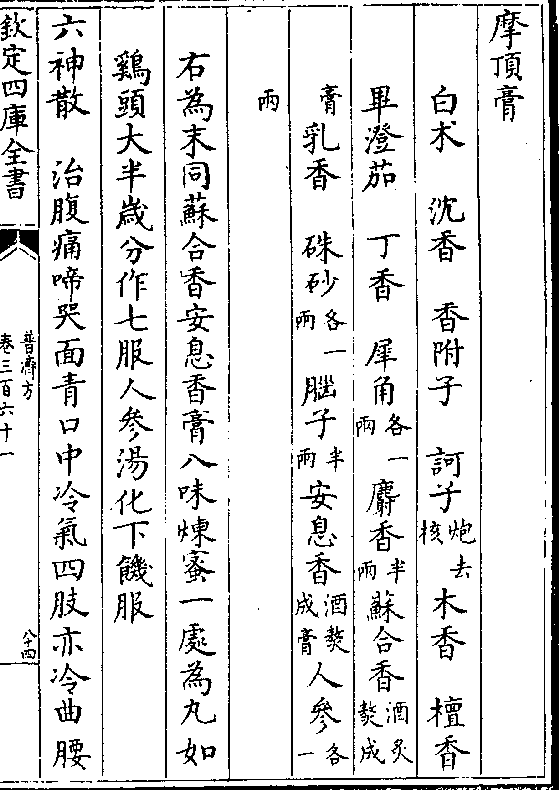 摩頂膏
白术　沈香　香附子　訶子炮去核　木香　檀香
畢澄茄　丁香　犀角各一兩　麝香半兩　蘇合香酒炙熬成
膏　乳香　硃砂各一兩　腦子半兩　安息香酒熬成膏　人參各一
兩
右為末同蘇合香安息香膏八味煉蜜一處為丸如
鷄頭大半歲分作七服人參湯化下饑服
六神散　治腹痛啼哭面青口中冷氣四肢亦冷曲腰
欽定四庫全書
普濟方
卷三百六十一